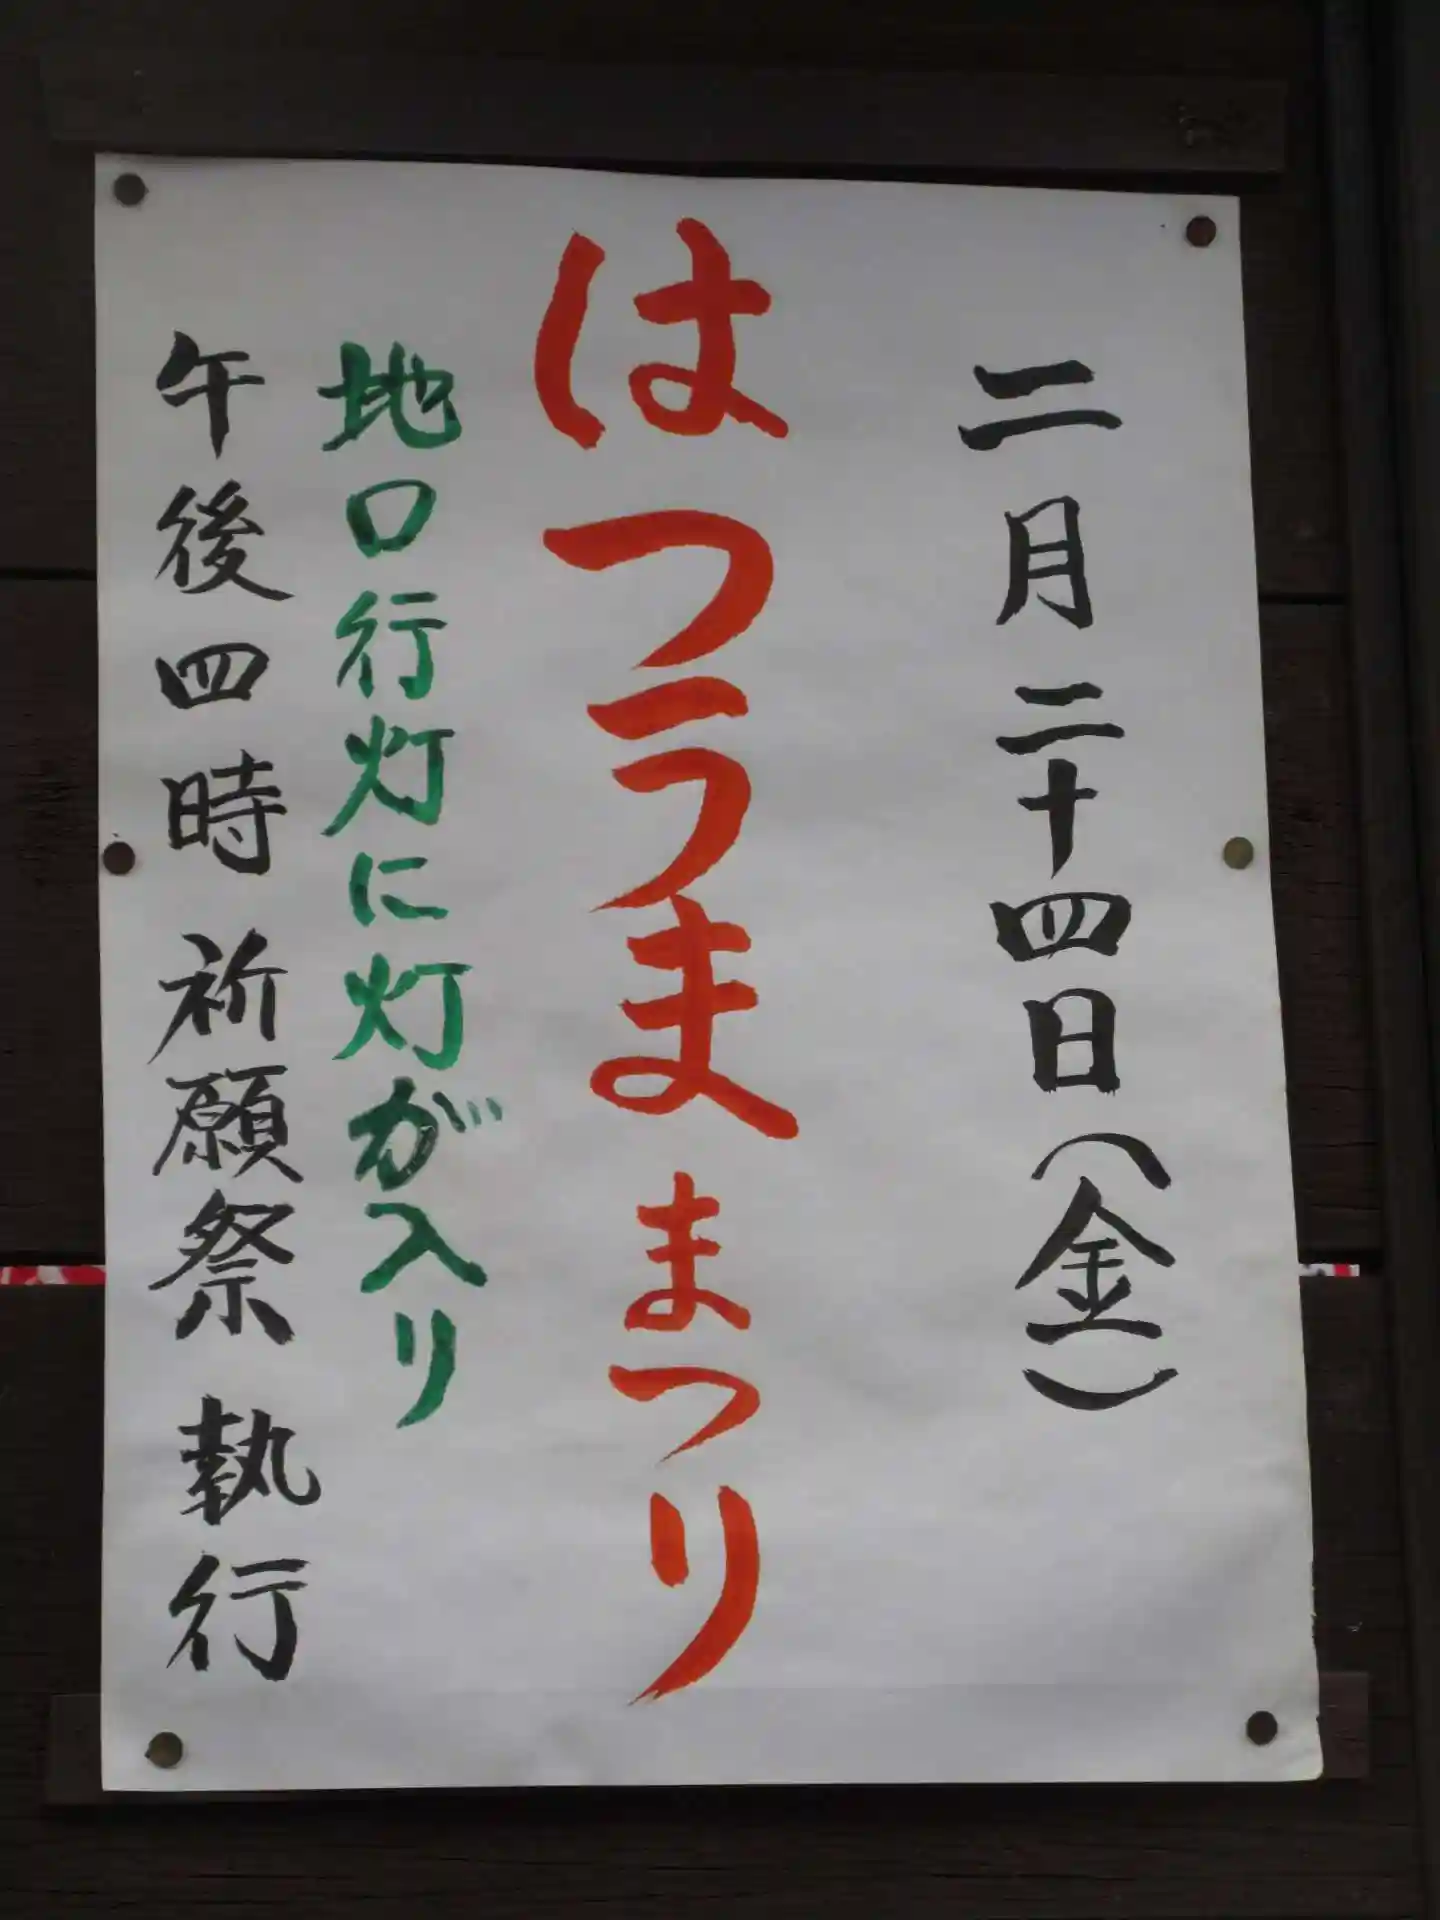 二月二十四日(金)
はつうままつり
地口行灯に灯が入り
午後四時 祈願祭 執行